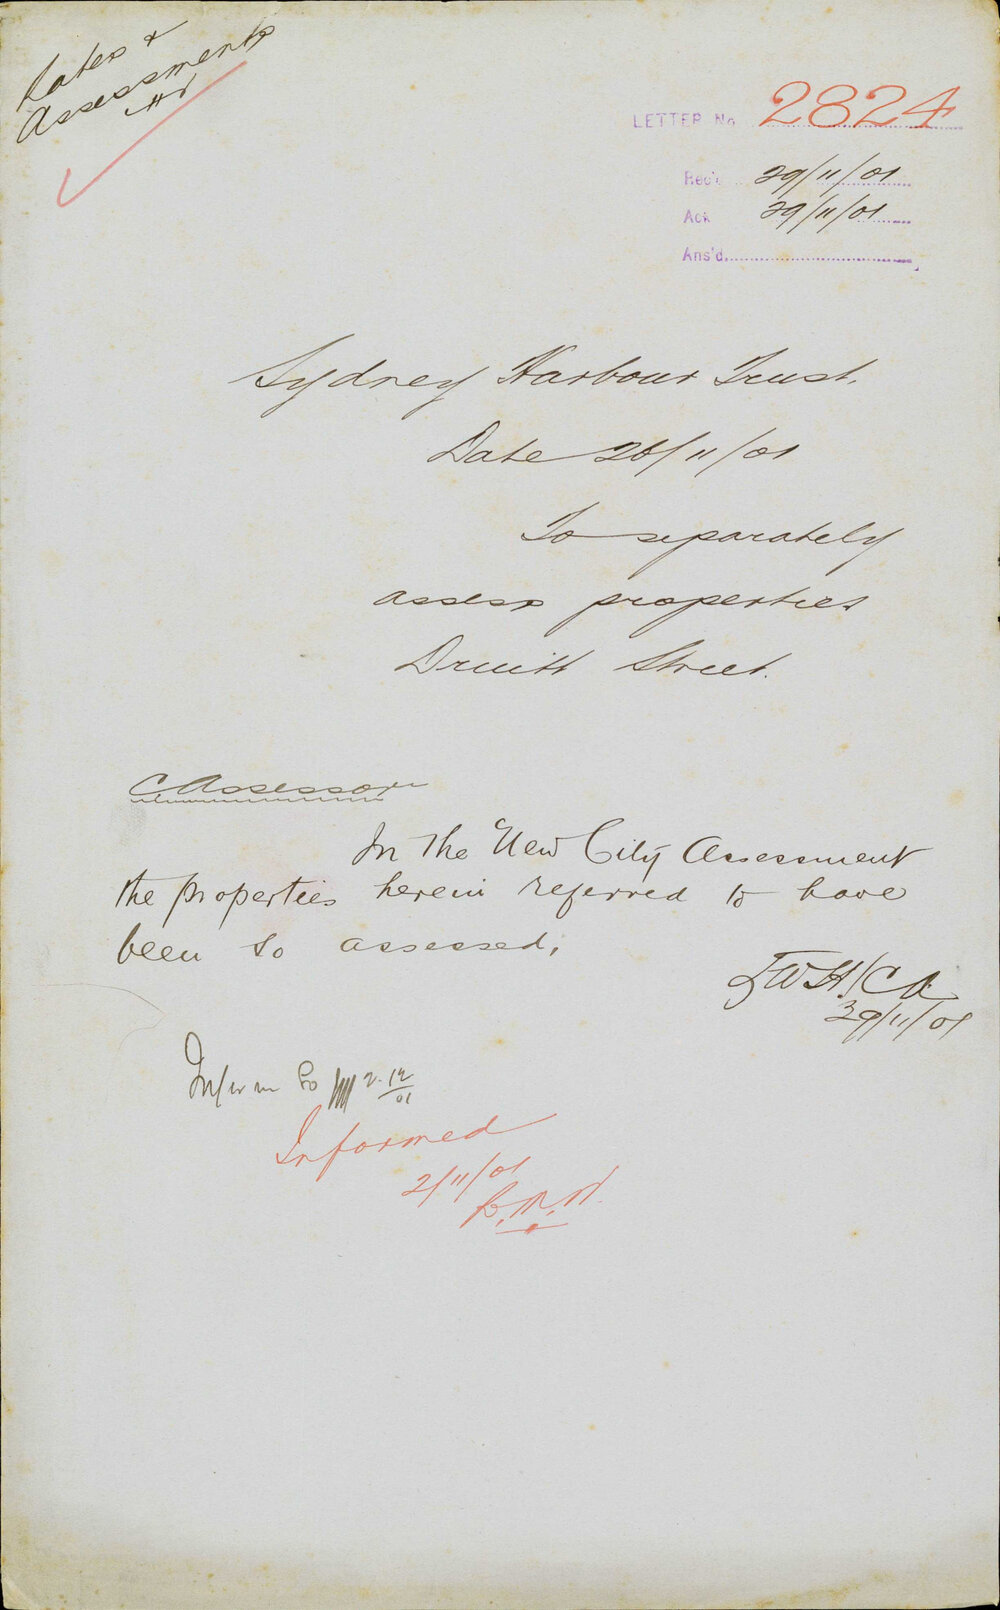 Rates &
Assessments
LETTER No 2824
Rec'd 29/11/01
Ack 29/11/01
Ans'd
Sydney Harbour Trust.
Date 26/11/01
To separately
assess properties
Druitt Street.
C Assessor
In the New City Assessment
the properties herein referred to have
been so assessed.
29/11/01
Inform 2.12/01
Informed
2/11/01